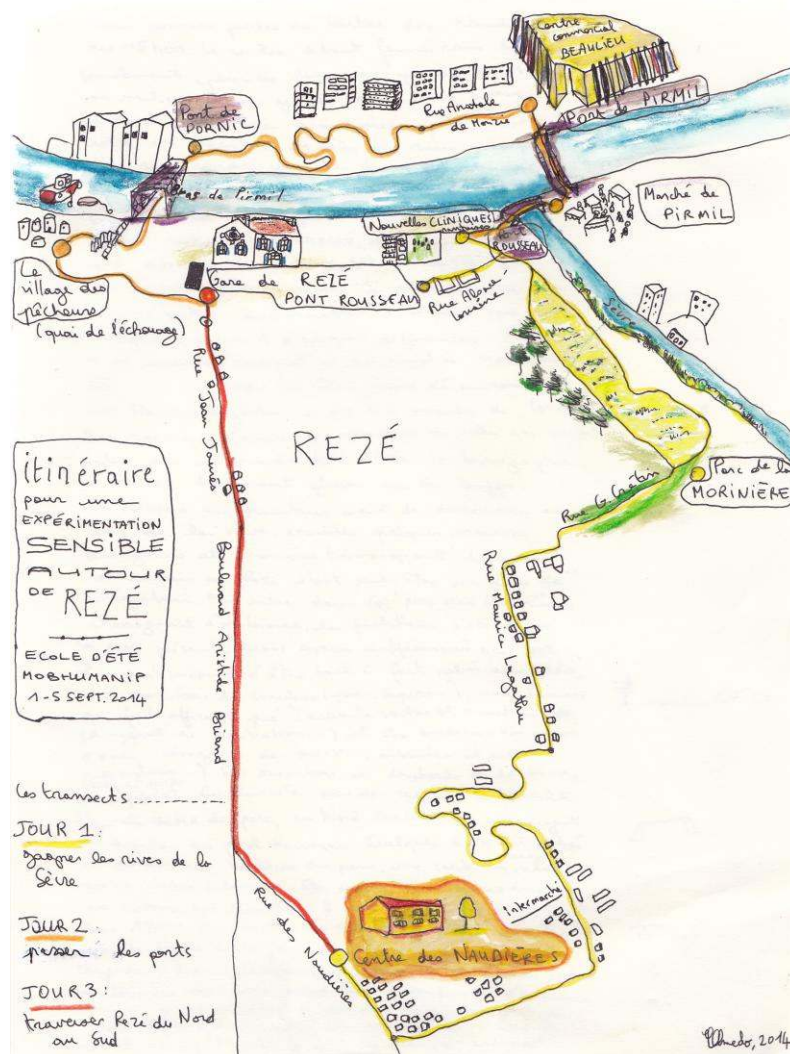 Centre
commercial
BEAULIEU
Pont de
PORNIC
Rue Anatole
de Monzie
Pont de PIRMIL
Bras de Pirmil
Marché de
PIRMIL
Nouvelles CLINIQUES
nantaises
Pont
ROUSSEAU
Le
village des
pêcheurs
(quai de l'échouage)
Gare de REZÉ
PONT ROUSSEAU
Rue Alsace-
Lorraine
Sèvre
Rue Jean Jaurès
REZÉ
Parc de la
MORINIÈRE
Rue G. Crétin
itinéraire
pour une
EXPÉRIMENTATION
SENSIBLE
AUTOUR
DE REZÉ
ECOLE D'ÉTÉ
MOBHUMANIP
1-5 SEPT. 2014
Boulevard Aristide Briand
Rue Maurice Lagathu
Les transects..........
JOUR 1:
gagner les rives de la
Sèvre
JOUR 2:
passer les ponts
JOUR 3:
traverser Rezé du Nord
au Sud
Rue des Naudières
Intermarché
Centre des NAUDIÈRES
2014